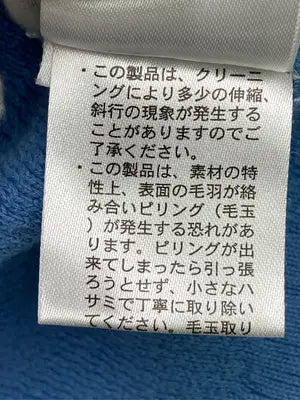 ・この製品は、クリーニ
ングにより多少の伸縮、
斜行の現象が発生する
ことがありますのでご
了承ください。
・この製品は、素材の特
性上、表面の毛羽が絡
み合いピリング（毛玉
）が発生する恐れがあ
ります。ピリングが出
来てしまったら引っ張
ろうとせず、小さなハ
サミで丁寧に取り除い
てください。毛玉取り